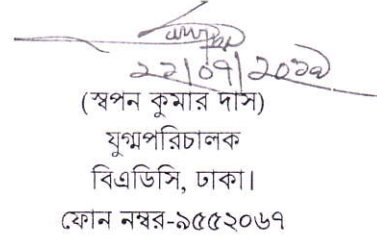 ২২|০৭|২০১৯
(স্বপন কুমার দাস)
যুগ্মপরিচালক
বিএডিসি, ঢাকা।
ফোন নম্বর-৯৫৫২০৬৭